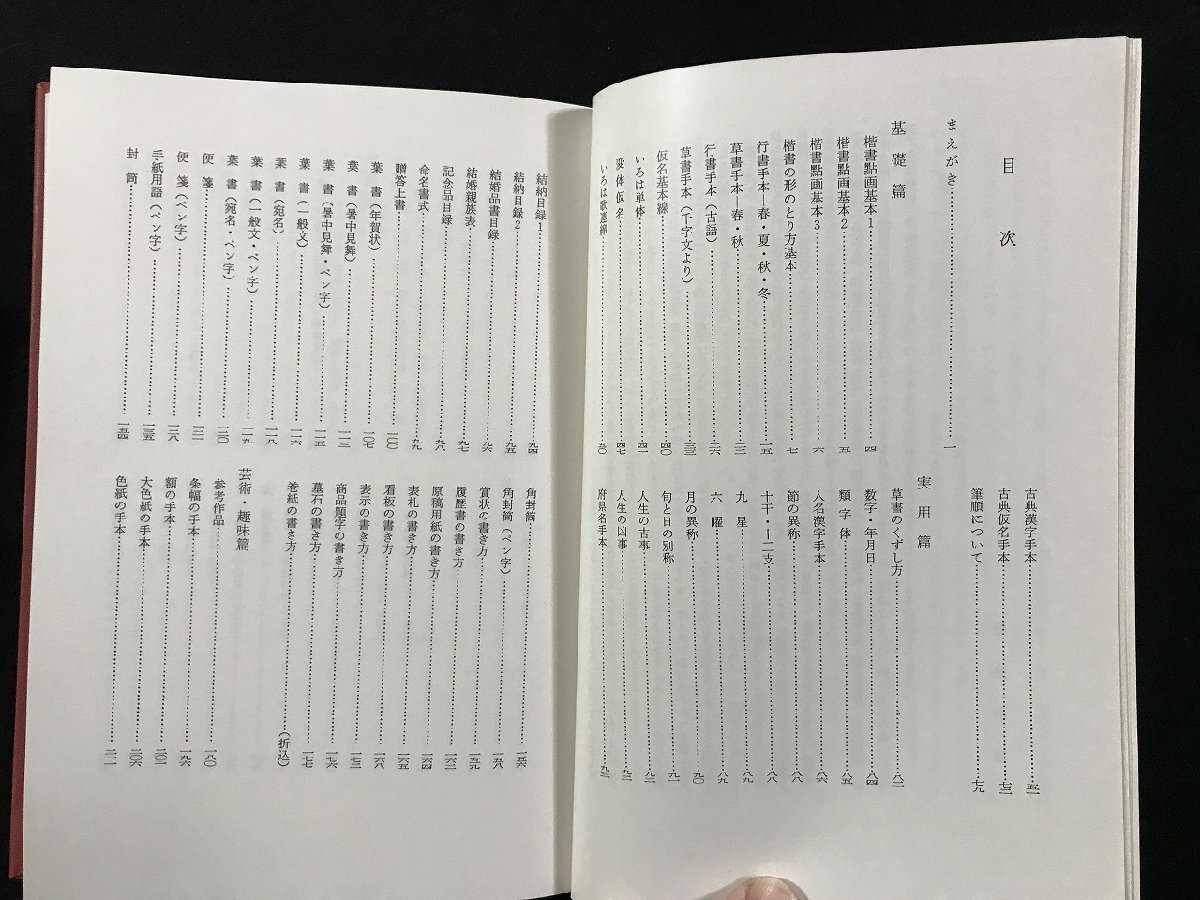 目次
まえがき……一
基礎篇
楷書點画基本1……四
楷書點画基本2……五
楷書點画基本3……六
楷書の形のとり方基本……七
行書手本—春・夏・秋・冬……一五
草書手本—春・秋……二三
行書手本(古語)……二六
草書手本(千字文より)……三三
仮名基本線……四〇
いろは単体……四一
変体仮名……四七
いろは歌連綿……五〇
古典漢字手本……五一
古典仮名手本……七三
筆順について……七九
実用篇
草書のくずし方……八二
数字・年月日……八四
類字体……八五
人名漢字手本……八六
節の異称……八八
十干・十二支……八八
九星……八九
六曜……八九
月の異称……九〇
旬と日の別称……九一
人生の吉事……九二
人生の凶事……九二
府県名手本……九三
結納目録1……九四
結納目録2……九五
結婚品書目録……九六
結婚親族表……九七
記念品目録……九八
命名書式……九九
贈答上書……一〇〇
葉書(年賀状)……一〇七
葉書(暑中見舞)……一一二
葉書(暑中見舞・ペン字)……一一五
葉書(一般文)……一一六
葉書(宛名)……一一八
葉書(一般文・ペン字)……一一九
葉書(宛名・ペン字)……一二〇
便箋……一二一
便箋(ペン字)……一二八
手紙用語(ペン字)……一三五
封筒……一五四
角封筒……一五六
角封筒(ペン字)……一五八
賞状の書き方……一五九
履歴書の書き方……一六二
原稿用紙の書き方……一六四
表札の書き方……一六五
看板の書き方……一六八
表示の書き方……一七三
商品題字の書き方……一七六
墓石の書き方……一七七
巻紙の書き方……(折込)
芸術・趣味篇
参考作品……一八〇
条幅の手本……一九六
額の手本……二〇二
大色紙の手本……二〇六
色紙の手本……二一一